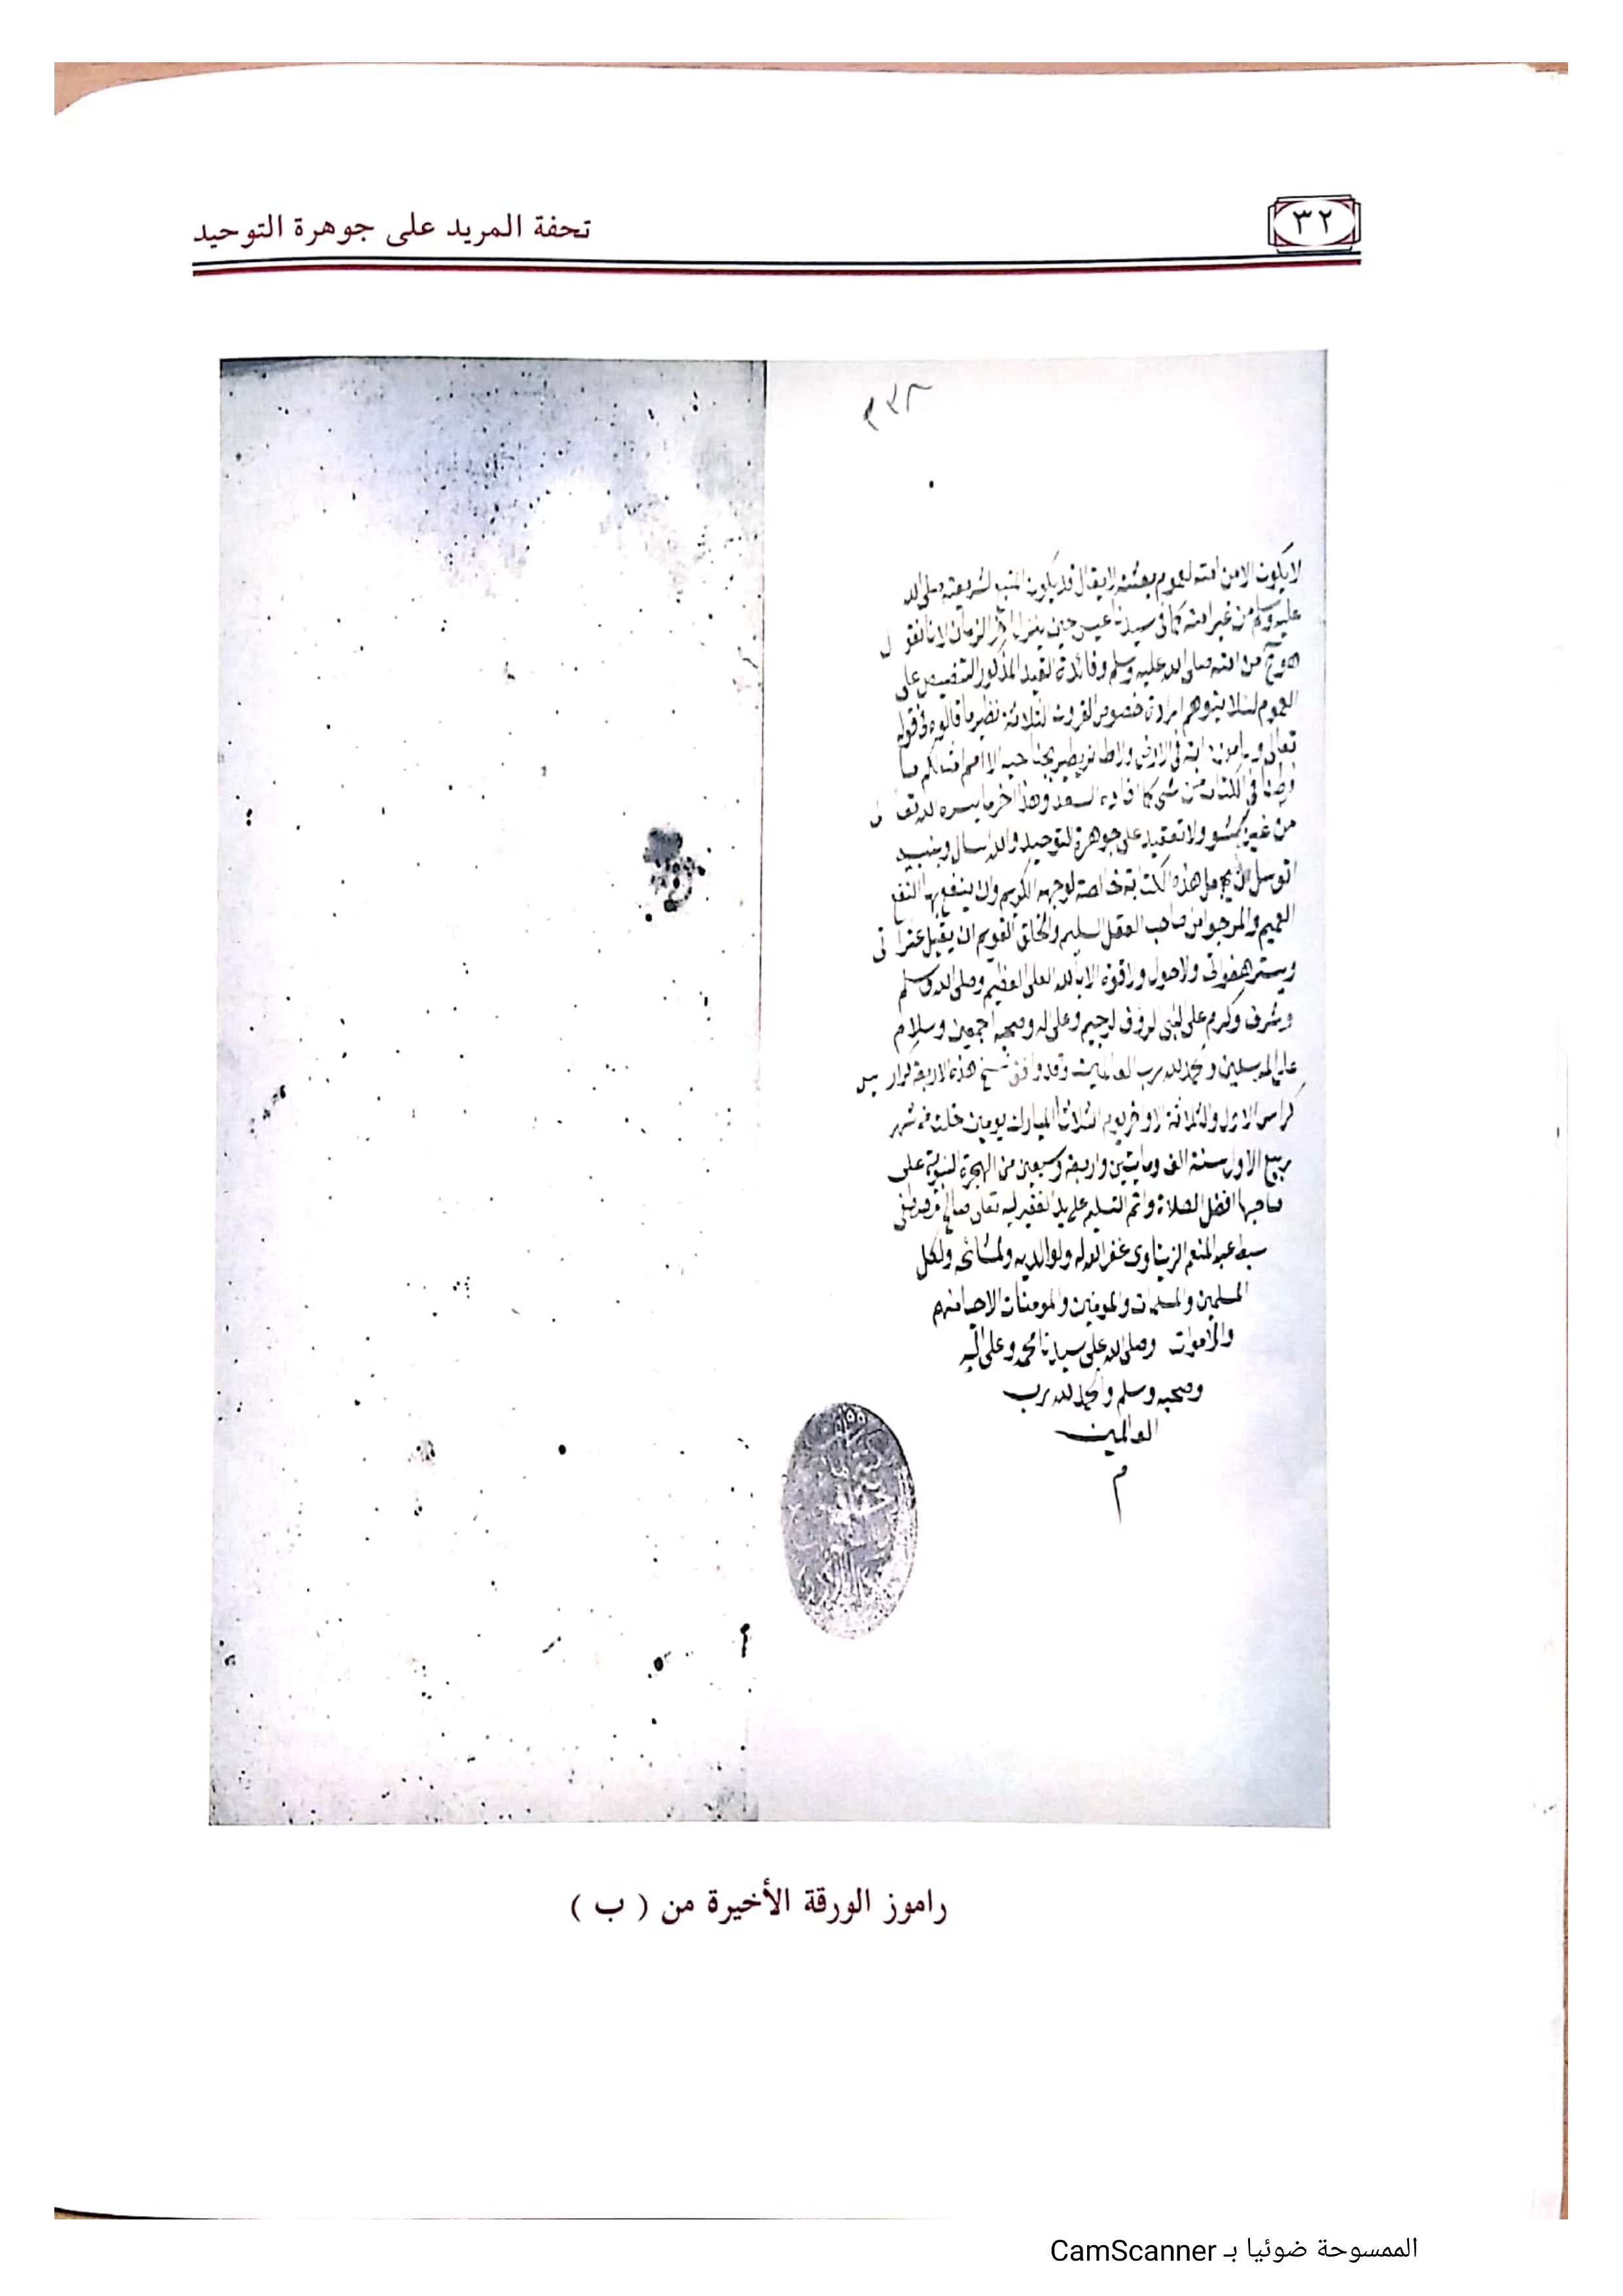 ٣٢
تحفة المريد على جوهرة التوحيد
لا يكون الا من امته لعموم بعثته لا يقال قد يكون المتبع لشريعته صلى الله
عليه وسلم من غير امته كما فى سيدنا عيسى حين ينزل آخر الزمان لانا نقول
هو من امته صلى الله عليه وسلم وفائدة القيد المذكور التنصيص على
العموم لئلا يتوهم ارادة خصوص القرون الثلاثة نظير ما قالوه فى قوله
تعالى وما من دابة فى الارض ولا طائر يطير بجناحيه الا امم امثالكم ما
فرطنا فى الكتاب من شى كما افاده السعد وهذا اخر ما يسره الله تعالى
من غير ولا تعقيد على جوهرة التوحيد والله اسال وبنبيه
اتوسل ان يجعل هذه الكتابة خالصة لوجهه الكريم وان ينفع بها النفع
العميم والمرجوا من صاحب العقل السليم والخلق القويم ان يقيل عثراتى
ويستر هفواتى ولا حول ولا قوة الا بالله العلى العظيم وصلى الله وسلم
وشرف وكرم على النبى الروف الرحيم وعلى اله وصحبه اجمعين وسلام
على المرسلين والحمد لله رب العالمين وقد وافق نسخ هذه الاربعة كراريس
كراس الاول والثلاثة الاواخر يوم الثلاث المبارك يومين خلت من شهر
ربيع الاول سنة الف ومايتين واربعة وسبعين من الهجرة النبوية على
صاحبها افضل الصلاة واتم التسليم على يد الفقير اليه تعالى صالح
سبط عبد المنعم الزيناوى غفر الله له ولوالديه ولمشائخه ولكل
المسلمين والمسلمات والمومنين والمومنات الاحيا منهم
والاموات وصلى الله على سيدنا محمد وعلى آله
وصحبه وسلم والحمد لله رب
العالمين
م
راموز الورقة الأخيرة من ( ب )
الممسوحة ضوئيا بـ CamScanner